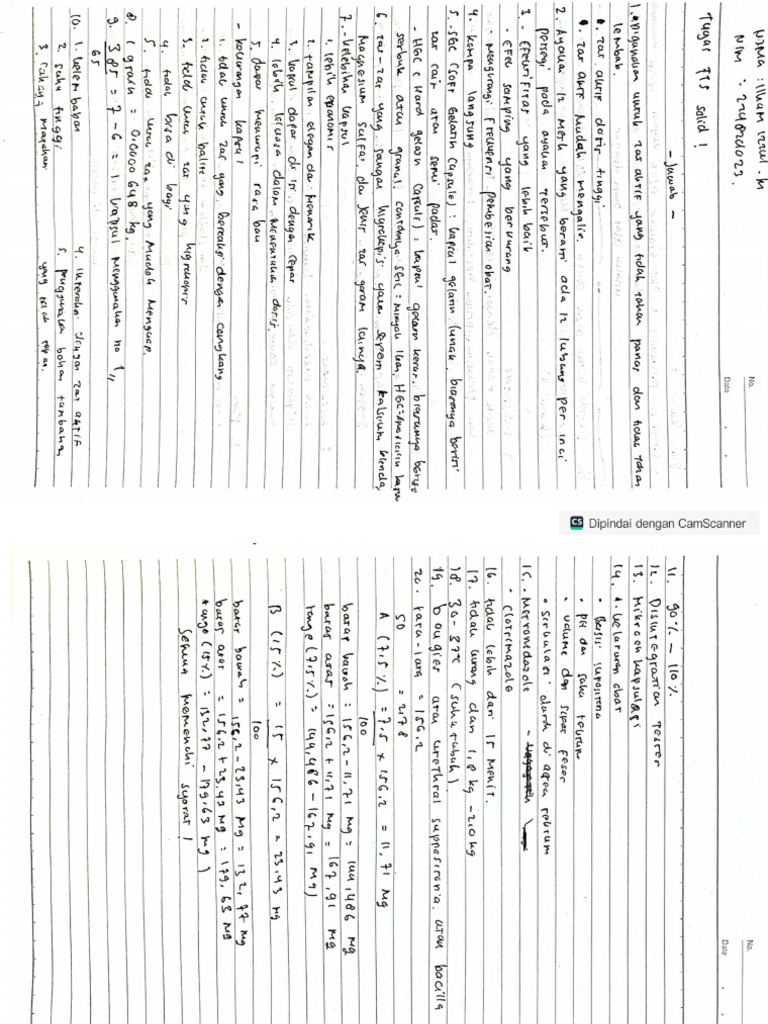 No.
Date
NAMA : Ilham rizal . M
NIM : 22480023.
Tugas FTS Solid !
- Jawab -
1. digunakan untuk zat aktif yang tidak tahan panas dan tidak tahan
lembab.
• zat aktif dosis tinggi
• zat aktif mudah mengalir.
2. Ayakan 12 mesh yang berarti ada 12 lubang per inci
persegi pada ayakan tersebut.
3. - Efektifitas yang lebih baik
- Efek samping yang berkurang
- Mengurangi frekuensi pemberian obat.
4. kempa langsung
5. SGC (soft Gelatin Capsule) : kapsul gelatin lunak, biasanya berisi
zat cair atau semi padat.
- HGC (Hard gelatin Capsule) : kapsul gelatin keras, biasanya berisi
serbuk atau granul. contohnya SGC = minyak ikan, HGC = Amoxicilin kaps
6. zat-zat yang sangat higroskopis yaitu seperti kalsium klorida,
Magnesium sulfat, dan jenis zat garam lainya.
7. - kelebihan kapsul
1. lebih ekonomis
2. tampilan elegan dan menarik
3. kapsul dapat di isi dengan cepat
4. lebih leluasa dalam menentukan dosis
5. dapat menutupi rasa bau
- kekurangan kapsul
1. tidak untuk zat yang bereaksi dengan cangkang
2. tidak untuk balita
3. tidak untuk zat yang higroskopis
4. tidak bisa di bagi
5. tidak untuk zat yang mudah menguap
8. 1 grain = 0.0000648 kg.
9. 385 = 7 - 6 = 1 kapsul menggunakan no 1,,
65
10. 1. kelembaban
2. suhu tinggi
3. cahaya matahari
4. interaksi dengan zat aktif
5. penggunaan bahan tambahan
yang tidak tepat.
CS Dipindai dengan CamScanner
No.
Date
11. 90% - 110%
12. Disintegration tester
13. Mikroenkapsulasi
14. • kelarutan obat
• Basis supositoria
• PH dan suhu rektum
• Volume dan sifat feses
• sirkulasi darah di area rektum
15. • Metronidazole
• Clotrimazole
16. tidak lebih dari 15 menit.
17. tidak kurang dari 1,8 kg - 2,0 kg
18. 30 - 37°C (suhu tubuh)
19. bougies atau urethral suppositoria. atau bacilla
20. rata-rata = 156.2
SD = 2.78
A (7,5%) = 7.5 x 156,2 = 11,71 mg
100
batas bawah : 156,2 - 11,71 mg = 144,486 mg
batas atas : 156,2 + 11,71 mg = 167,91 mg
range (7,5%) = 144,486 - 167,91 mg)
B (15%) = 15 x 156,2 = 23,43 mg
100
batas bawah = 156,2 - 23,43 mg = 132,77 mg
batas atas = 156,2 + 23,43 mg = 179,63 mg
range (15%) = 132,77 - 179,63 mg)
Semua memenuhi syarat !